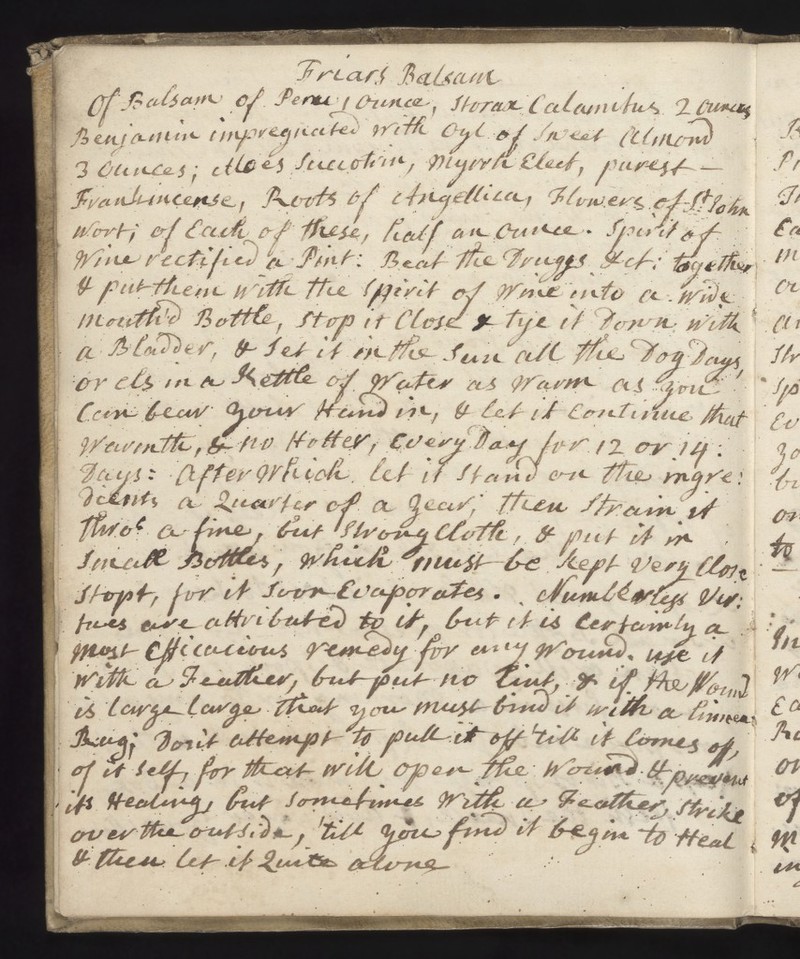 Friars Balsam
Of Balsam of Peru 1 Ounce, Storax Calamitus 2 Ounces
Benjamin impregnated with Oyl of Sweet Almond
3 Ounces; Aloes Succotrin, Myrrh Elect, purest –
Frankincense, Roots of Angellica, Flowers of St John
Wort; of Each of these, half an Ounce. Spirit of
Wine rectified a Pint: Beat the Druggs &ct: together
& put them with the Spirit of Wine into a wide
mouth'd Bottle, Stop it Close & tye it Down with
a Bladder, & Set it in the Sun all the Dog Days,
or els in a Kettle of Water as Warm as you
Can bear your Hand in, & let it Continue that
Warmth, & no Hotter, Every Day for 12 or 14:
Days: After Which let it Stand on the ingre:
dients a Quarter of a Year; then Strain it
thro' a fine, but Strong Cloth, & put it in
Small Bottles, which must be kept very Close
Stopt, for it Soon Evaporates. Numberless Vir:
tues are attributed to it, but it is Certainly a
most Efficacious remedy for any Wound. use it
with a Feather, but put no lint, & if the Wound
is large large that you must bind it with a linnen
Rag; Don't attempt to pull it off 'till it Comes off,
of it Self, for that will open the Wound & prevent
its Healing, but Sometimes With a Feather, Strike
over the outside, 'till you find it begin to Heal
& then let it Quite alone